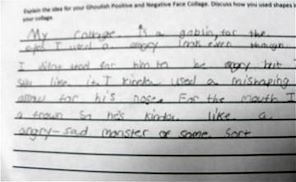 Explain the idea for your Ghoulish Positive and Negative Face Collage. Discuss how you used shapes
your collage.
My collage is a goblin, for the
eyes I used a angry look even though
I for him to be angry but
like it I kinda used a mishaping
for his nose. For the mouth I
a frown so he's kinda like a
angry-sad monster of some sort